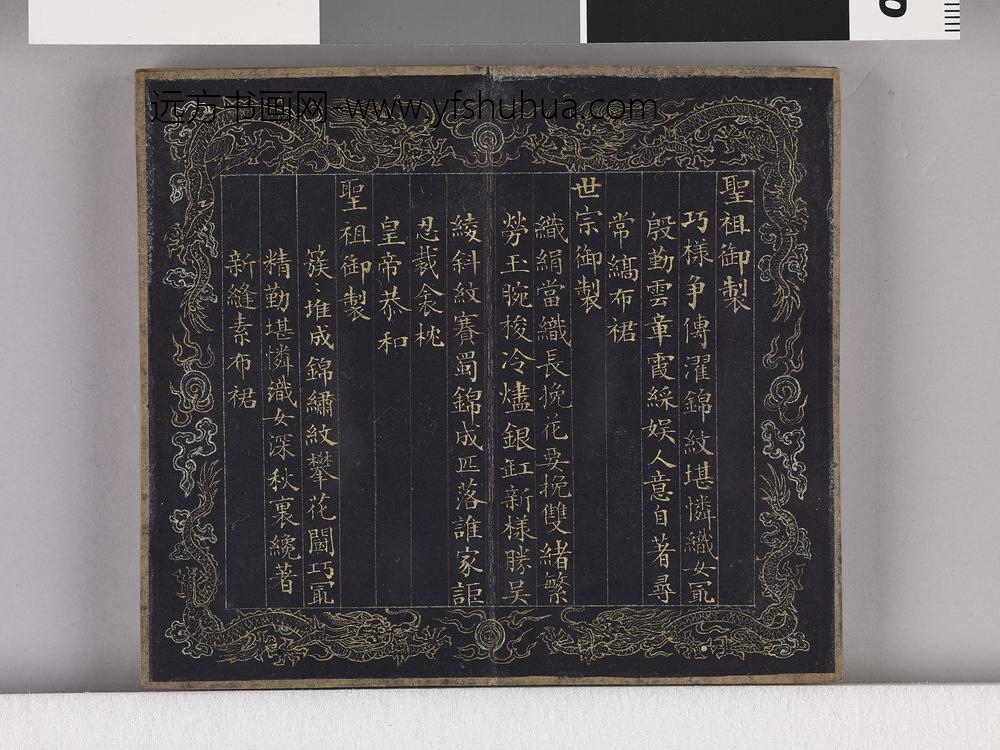 远方书画网-www.yfshuhua.com
聖祖御製
巧樣争傳濯錦紋堪憐織女㝡
殷勤雲章霞綵娱人意自著尋
常縞布裙
世宗御製
織絹當織長挽花要挽雙緒繁
勞玉腕梭冷燼銀缸新様勝吴
綾斜紋賽蜀錦成匹落誰家詎
忍裁衾枕
皇帝恭和
聖祖御製
簇〻堆成錦繡紋攀花鬬巧㝡
精勤堪憐織女深秋裏纔著
新縫素布裙